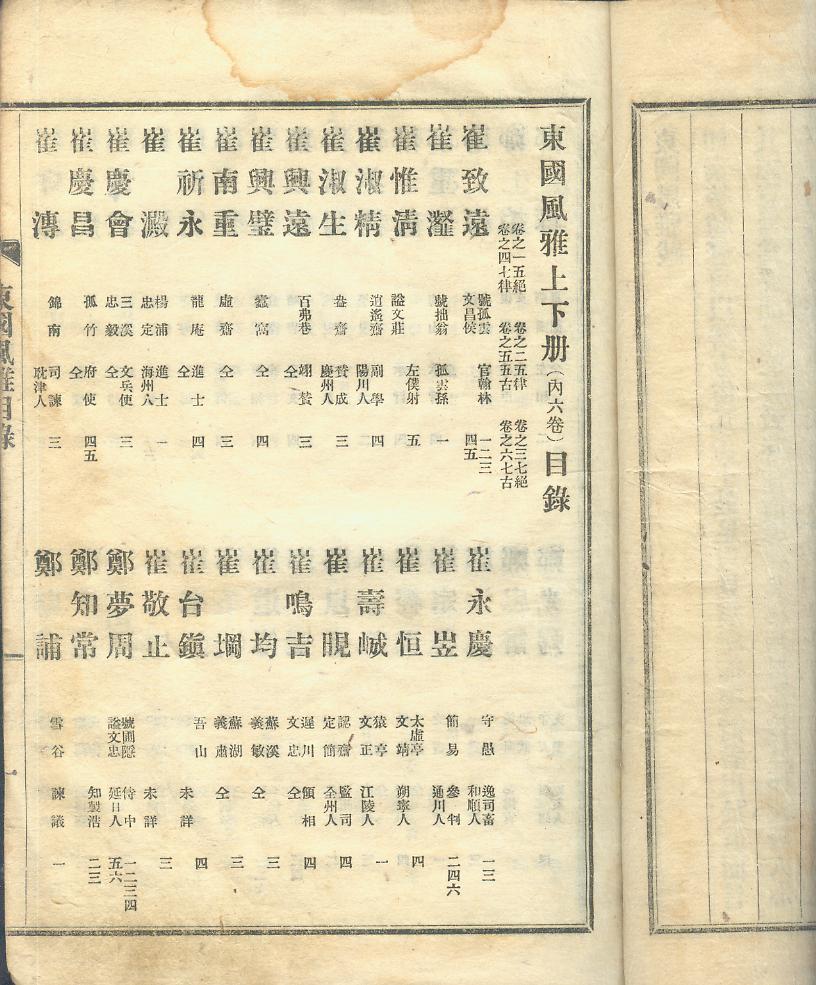 東國風雅上下册（內六卷）目錄
卷之一五絕 卷之二五律 卷之三七絕
卷之四七律 卷之五五古 卷之六七古
崔致遠 號孤雲 文昌侯 官翰林 一二三四五
崔瀣 號拙翁 孤雲孫 一
崔惟淸 謚文莊 左僕射 五
崔淑精 逍遙齋 副學 陽川人 四
崔淑生 盎齋 贊成 慶州人 三
崔興遠 百弗巷 翊贊 仝 三
崔興璧 蠹窩 仝 四
崔南重 虛齋 仝 三
崔祈永 龍庵 進士 仝 四
崔澱 楊浦 忠定 進士 海州人 一
崔慶會 三溪 忠毅 文兵使 仝 三
崔慶昌 孤竹 府使 仝 四五
崔溥 錦南 司諫 耽津人 三
崔永慶 守愚 逸司畜 和順人 一三
崔岦 簡易 參判 通川人 二四六
崔恒 太虛亭 文靖 朔寧人 四
崔壽峸 猿亭 文正 江陵人 一
崔晛 認齋 定簡 監司 全州人 四
崔鳴吉 遲川 文忠 領相 仝 四
崔均 蘇溪 義敏 仝 三
崔堈 蘇湖 義肅 仝 三
崔台鎭 吾山 未詳 四
崔敬止 未詳 三
鄭夢周 號圃隱 謚文忠 侍中 延日人 一二三四五六
鄭知常 知製誥 二三
鄭誧 雪谷 諫議 一
東國風雅目錄